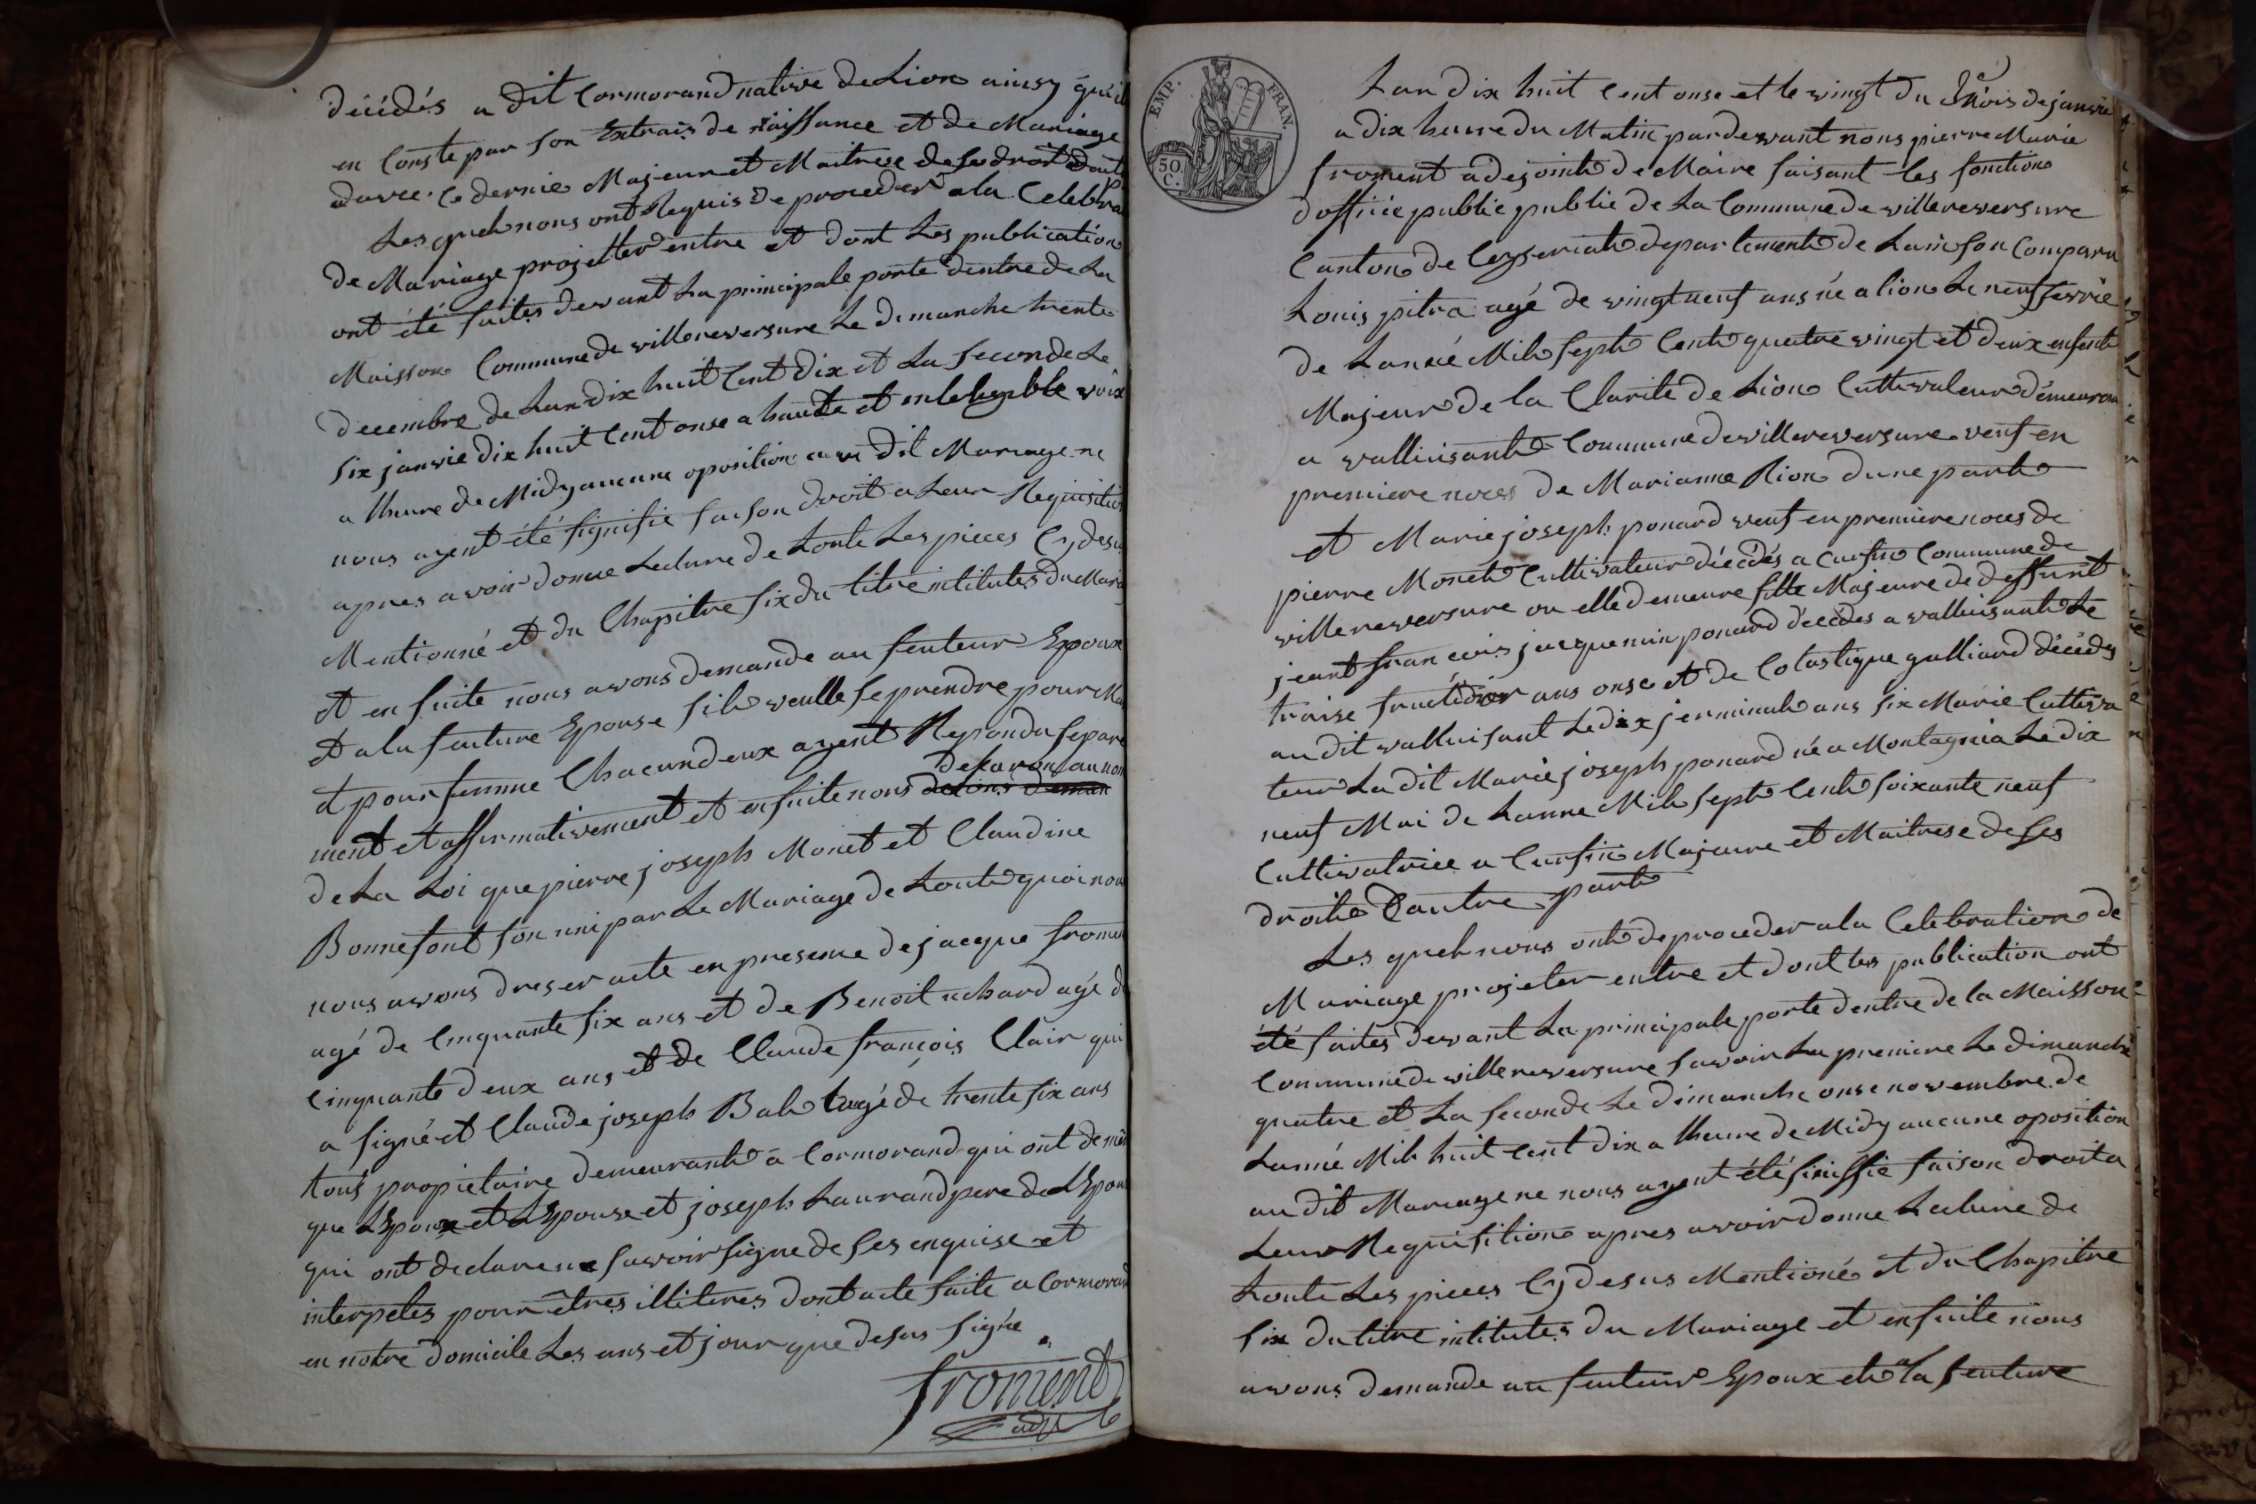 décédés a dit Cormorand native de Lion ainsy qu'il
en Conste par son Extrais de naissance et de Mariage
davec. Ce dernie Majeur et Maitrese de ses droit dautr
Les quels nous ont Requis de proceder a la Celebra
de Mariage projetter entre et dont Les publication
ont été faites devant La principale porte dentre de La
Maisson Commune de villereversure Le dimanche trente
decembre de Lan dix huit Cent dix et La seconde Le
six janvie dix huit Cent onse a haute et voix
a lheure de Midy aucune oposition au dit Mariage ne
nous ayent été signifie faison droit a Leur Requisition
apres avoir donne Lecture de toute Les pieces Cy desu
Mentionné et du Chapitre six du titre intitutes du Maria
et en suite nous avons demande au feuteur Epoux
et a la feuture Epouse sils veulle se prendre pour Ma
et pour femme Chacun deux ayent Repondu separe
declaron au nom
ment et affirmativement et ensuite nous
de La Loi que pierre joseph Monet et Claudine
Bonnefont son uni par Le Mariage de toute quoi nou
nous avons dreser acte en presence de jacque froment
agé de Cinquante six ans et de Benoit uchard agé d
Cinquante deux ans et de Claude françois Clair qui
a signé et Claude joseph Bab agé de trente six ans
tous propietaire demeurante a Cormorand qui ont de mêm
que LEpoux et LEpouse et joseph Laurand pere de LEpou
qui ont declare ne savoir signe de ses enquise et
interpeles pour êtres illiteres dont acte faite a Cormorand
en notre domicile Les ans et jour que desus signé
froment
adj
EMP. FRAN.
50 C.
Lan dix huit Cent onse et le vingt du Mois de janvie
a dix heure du Matin pardevant nous pierre Marie
froment adejointe de Maire faisant les fonction
dofficie public publie de La Commune de villereversure
Canton de Ceyseriate departemente de Lain son Comparu
Louis pitra agé de vingt neuf ans né a lion Le neuf fevrie
de Lanneé Mil sept Cent quatre vingt et deux enfent
Majeur de la Clarite de Lion Cultivateur démeuran
a valluisante Commune de villereversure veuf en
premiere noces de Marianne Rion dune parte
et Marie joseph ponard veuf en premiere noces de
pierre Monet Cultivateur décédés a Cursin Commune de
villereversure ou elle demeure fille Majeure de deffunt
jeant francois jacquemin ponard décédes a valluisante Le
traise fructidor ans onse et de Colastique galliard décédes
au dit valluisant Le dix jerminal ans six Marie Cultiva
teur La dit Marie joseph ponard né a Montagnia Le dix
neuf Mai de Lanne Mil sept Cent soixante neuf
Cultivatrice a Cursin Majeure et Maitrese de ses
droite dautre parte
Les quels nous onts de proceder a la Celebration de
Mariage projeter entre et dont les publication ont
été faites devant La principale porte dentre de la Maisson
Commune de villereversure savoir La premiere Le dimanche
quatre et La seconde Le dimanche onse novembre de
Lanné Mil huit cent dix a lheure de Midy aucune oposition
au dit Mariage ne nous ayent été faison droit a
Leur Requisition apres avoir donne Lecture de
toute Les pieces Cy desus Mentioné et du Chapitre
six du titre intitutes du Mariage et ensuite nous
avons demande au feuteur Epoux et a la feuture